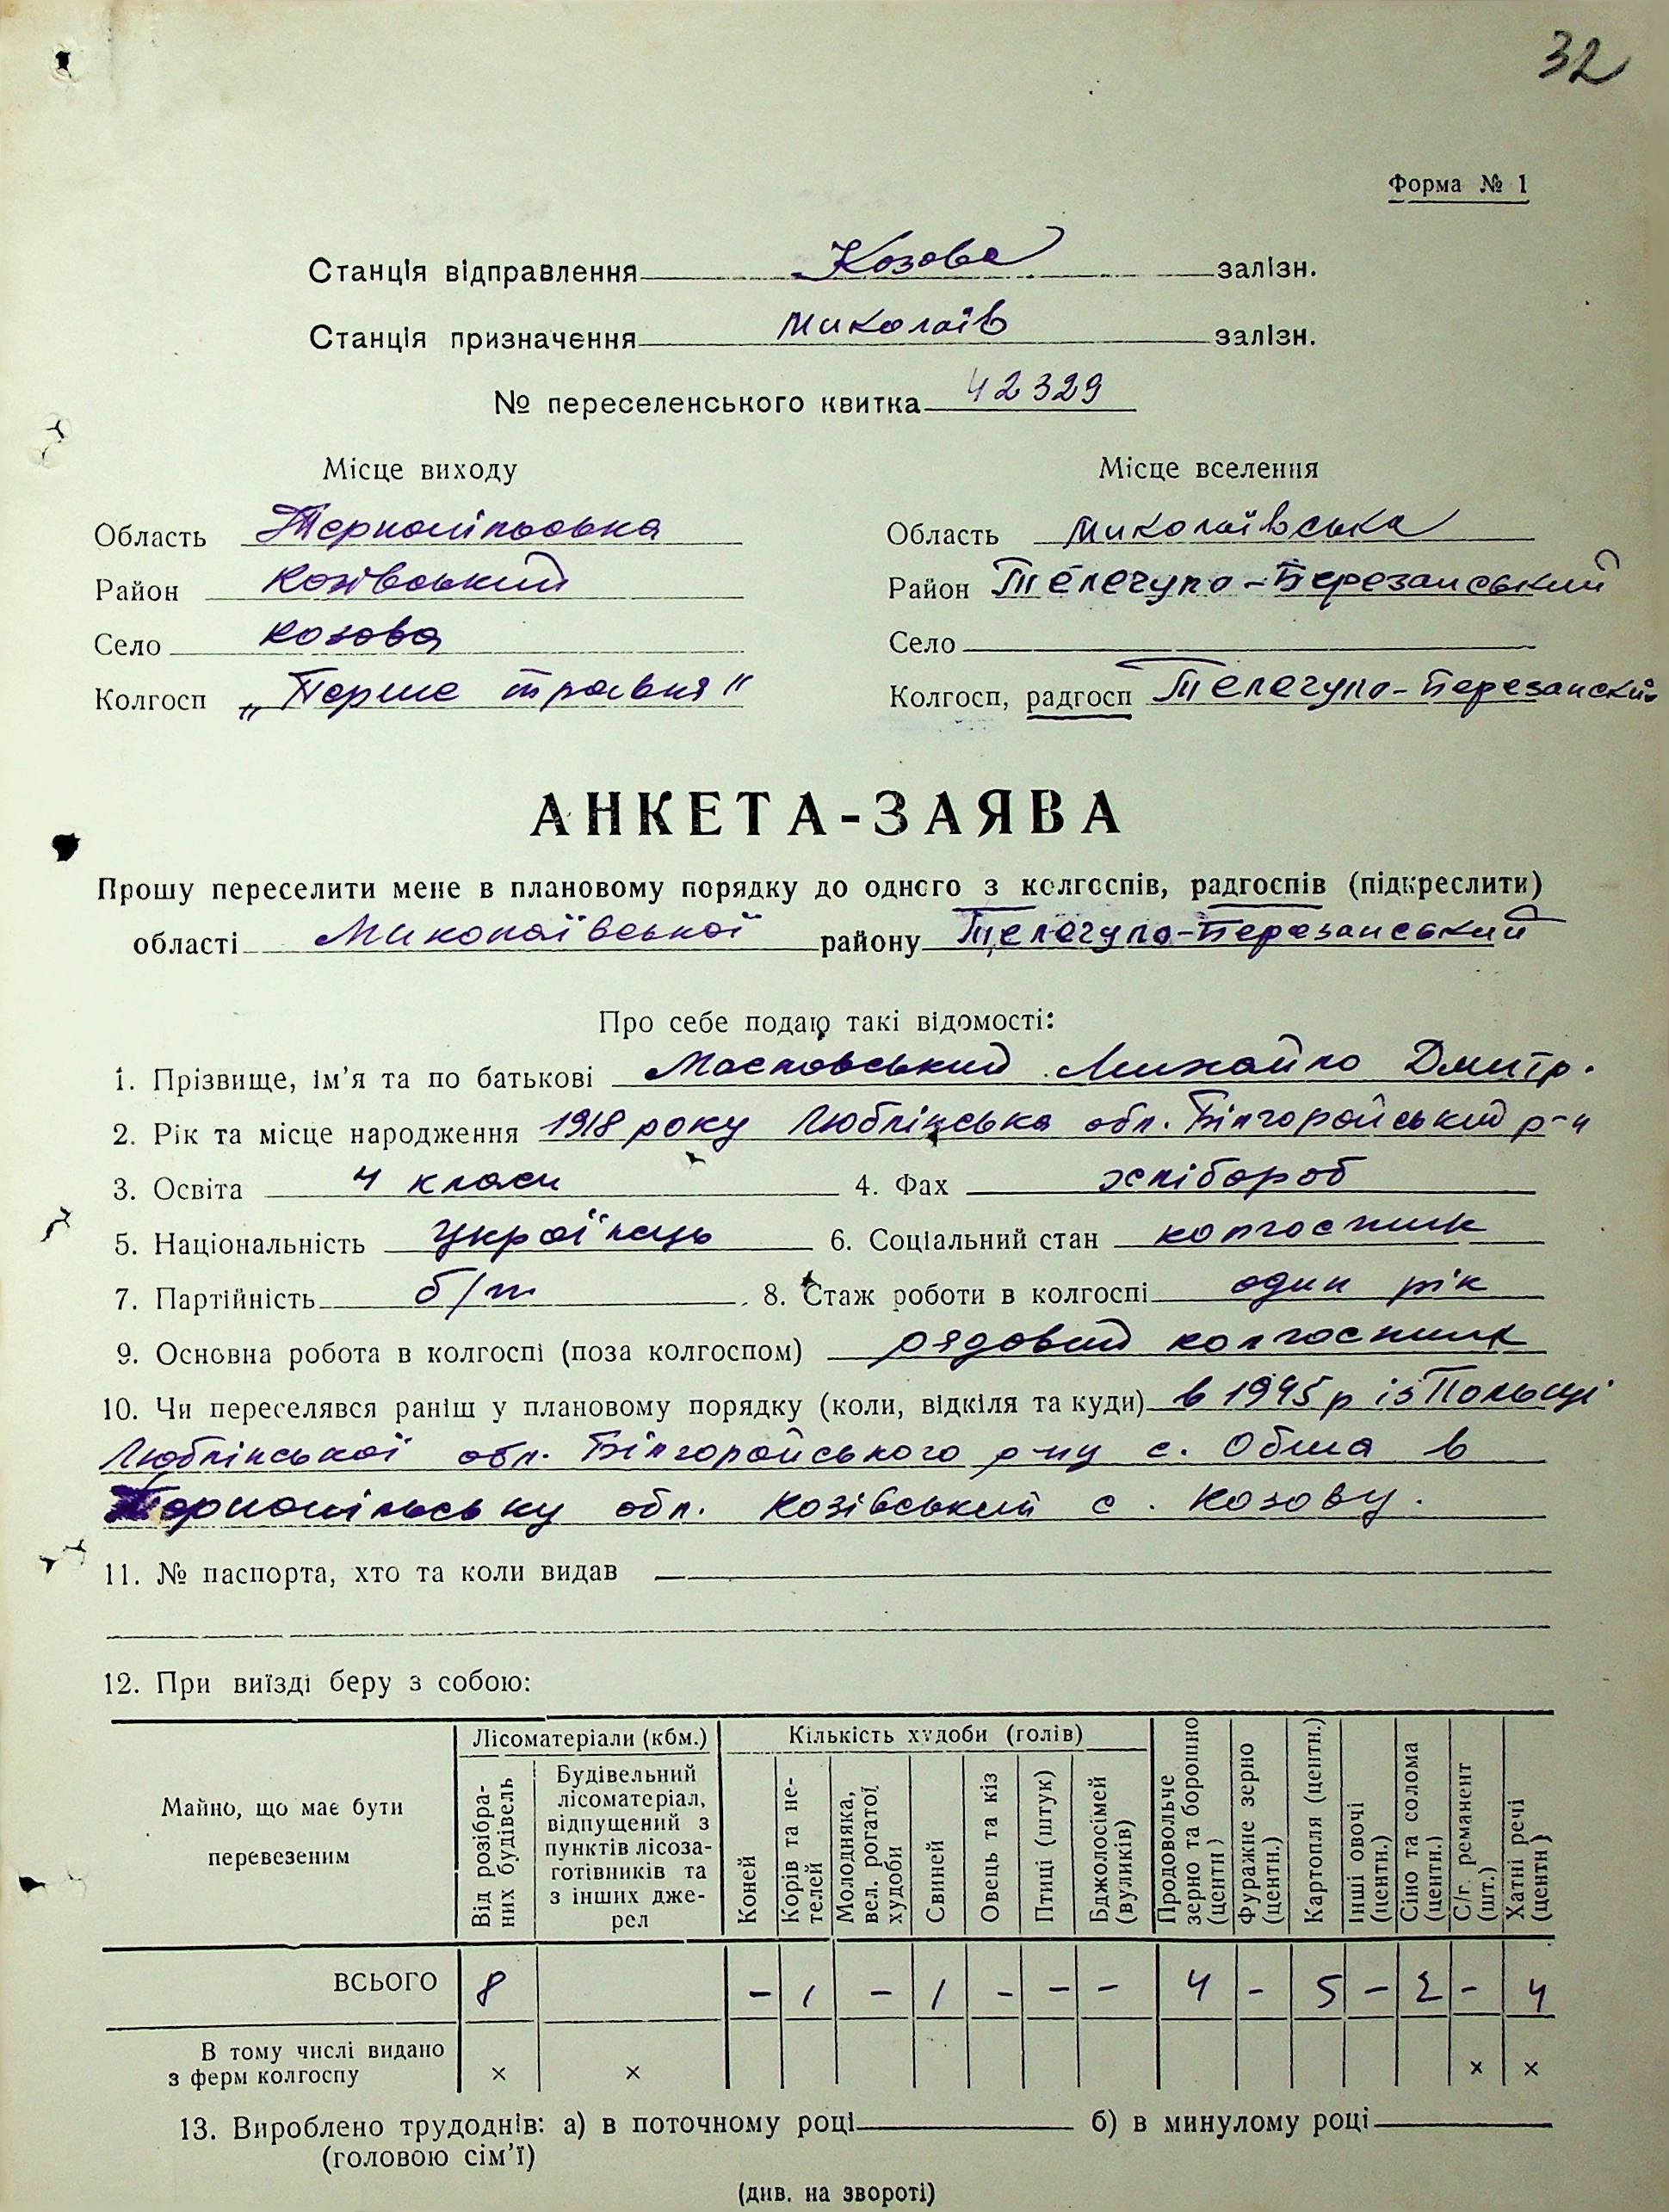 32
Форма № 1
Станція відправлення Козова залізн.
Станція призначення Миколаїв залізн.
№ переселенського квитка 42329
Місце виходу Місце вселення
Область Тернопільська Область Миколаївська
Район Козівський Район Тілігуло-Березанський
Село Козова Село
Колгосп „Перше травня" Колгосп, радгосп Тілігуло-Березанский
АНКЕТА-ЗАЯВА
Прошу переселити мене в плановому порядку до одного з колгоспів, радгоспів (підкреслити)
області Миколаївської району Тілігуло-Березанський
Про себе подаю такі відомості:
1. Прізвище, ім'я та по батькові Масловський Михайло Дмитр.
2. Рік та місце народження 1918 року Люблінська обл. Білгорайський р-н
3. Освіта 4 класи 4. Фах хлібороб
5. Національність українець 6. Соціальний стан колгоспник
7. Партійність б/п 8. Стаж роботи в колгоспі один рік
9. Основна робота в колгоспі (поза колгоспом) рядовий колгоспник
10. Чи переселявся раніш у плановому порядку (коли, відкіля та куди) в 1945 р із Польщі
Люблінської обл. Білгорайського р-ну с. Обша в
Тернопільську обл. Козівський с. Козову.
11. № паспорта, хто та коли видав
12. При виїзді беру з собою:
Майно, що має бути перевезеним
Лісоматеріали (кбм.)
Від розібраних будівель
Будівельний лісоматеріал, відпущений з пунктів лісозаготівників та з інших джерел
Кількість худоби (голів)
Коней
Корів та нетелей
Молодняка, вел. рогатої худоби
Свиней
Овець та кіз
Птиці (штук)
Бджолосімей (вуликів)
Продовольче зерно та борошно (центн)
Фуражне зерно (центн.)
Картопля (центн.)
Інші овочі (центн.)
Сіно та солома (центн.)
С/г. реманент (шт.)
Хатні речі (центн)
ВСЬОГО 8 – 1 – 1 – – – 4 – 5 – 2 – 4
В тому числі видано
з ферм колгоспу × × × ×
13. Вироблено трудоднів: а) в поточному році б) в минулому році
(головою сім'ї)
(див. на звороті)